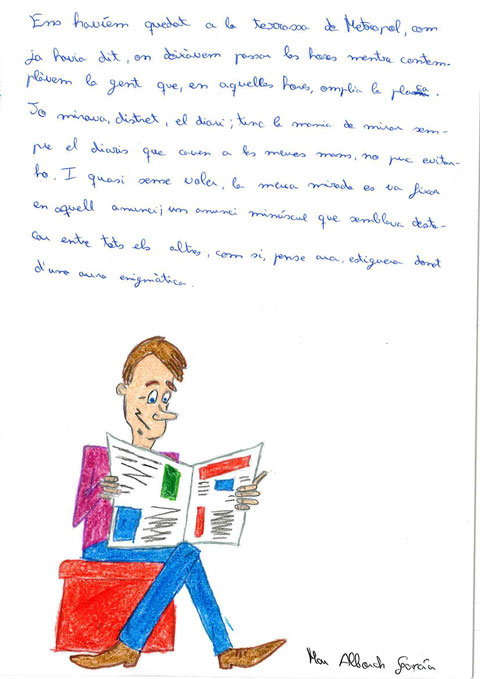 Ens havíem quedat a la terrassa de Metropol, com
ja havia dit, on deixàvem passar les hores mentre contem-
plàvem la gent que, en aquelles hores, omplia la plaça.
Jo mirava, distret, el diari; tinc la mania de mirar sem-
pre el diaris que cauen a les meues mans, no puc evitar-
ho. I quasi sense voler, la meua mirada es va fixar
en aquell anunci; un anunci minúscul que semblava desta-
car entre tots els altres, com si, pense ara, estiguera dotat
d'una aura enigmàtica.
Mar Alborch García